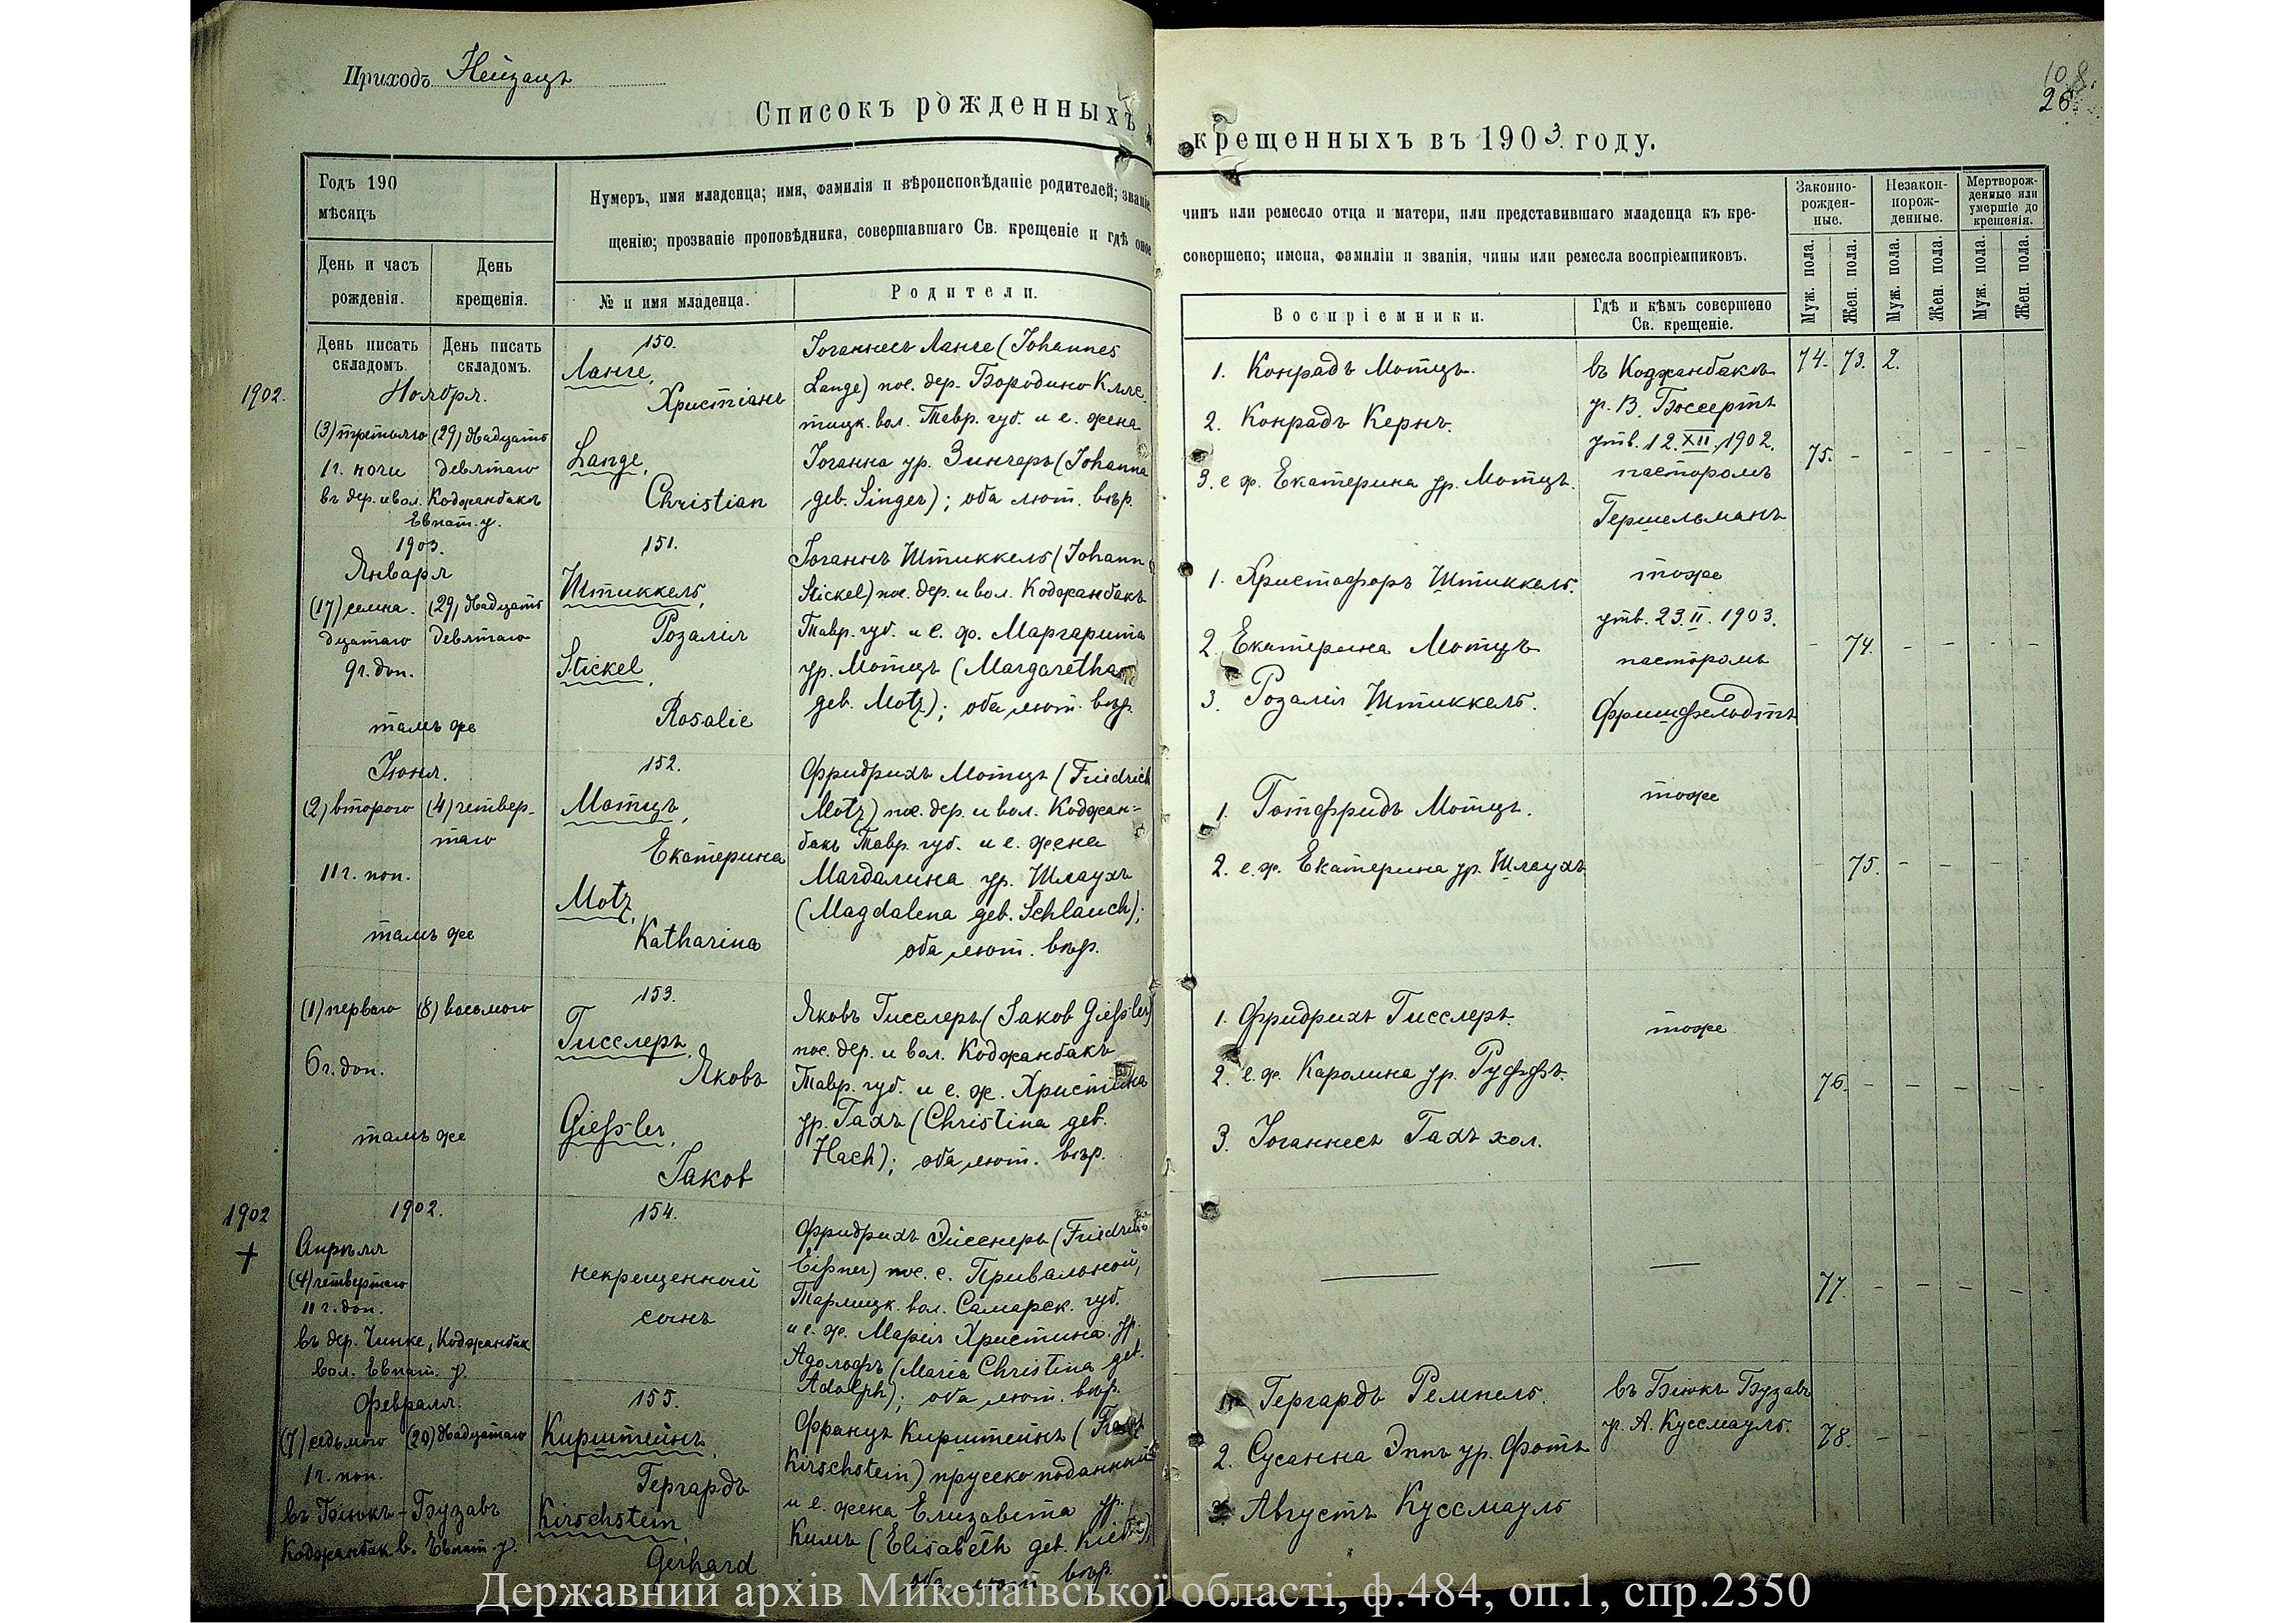 Приходъ Нейзацъ
108.
26
Списокъ рожденныхъ и крещенныхъ въ 1903 году.
Годъ 190
мѣсяцъ
День и часъ рожденія.
День крещенія.
Нумеръ, имя младенца; имя, фамилія и вѣроисповѣданіе родителей; званіе
чинъ или ремесло отца и матери, или представившаго младенца къ кре-
щенію; прозваніе проповѣдника, совершавшаго Св. крещеніе и гдѣ оное
совершено; имена, фамиліи и званія, чины или ремесла воспріемниковъ.
№ и имя младенца.
Родители.
Воспріемники.
Гдѣ и кѣмъ совершено
Св. крещеніе.
Законно-
рожден-
ные.
Незакон-
норож-
денные.
Мертворож-
денные или
умершіе до
крещенія.
Муж. пола.
Жен. пола.
Муж. пола.
Жен. пола.
Муж. пола.
Жен. пола.
День писать
складомъ.
День писать
складомъ.
1902.
Ноября.
(3) третьяго
1 г. ночи
въ дер. и вол. Коджанбакъ
Евпат. у.
(29) двадцать
девятаго
150.
Ланге,
Христіанъ
Lange,
Christian
Іоганнесъ Ланге (Johannes
Lange) пос. дер. Бородино Кляс-
тицк. вол. Тавр. губ. и е. жена
Іоганна ур. Зингеръ (Johanna
geb. Singer); оба лют. вѣр.
1. Конрадъ Мотцъ.
2. Конрадъ Кернъ.
3. е. ж. Екатерина ур. Мотцъ.
въ Коджанбакъ
у. В. Боссертъ
утв. 12.XII.1902.
пасторомъ
Гершельманъ
74. 73. 2.
75. - - - - -
1903.
Января
(17) семна-
дцатаго
9 г. доп.
тамъ же
(29) двадцать
девятаго
151.
Штиккель,
Розалія
Stickel,
Rosalie
Іоганнъ Штиккель (Johann
Stickel) пос. дер. и вол. Коджанбакъ
Тавр. губ. и е. ж. Маргарита
ур. Мотцъ (Margaretha
geb. Motz); оба лют. вѣр.
1. Христофоръ Штиккель.
2. Екатерина Мотцъ
3. Розалія Штиккель.
тоже
утв. 23.II.1903.
пасторомъ
Фришфельдтъ
- 74. - - - -
Іюня.
(2) второго
11 г. поп.
тамъ же
(4) четвер-
таго
152.
Мотцъ,
Екатерина
Motz,
Katharina
Фридрихъ Мотцъ (Friedrich
Motz) пос. дер. и вол. Коджан-
бакъ Тавр. губ. и е. жена
Магдалина ур. Шлаухъ
(Magdalena geb. Schlauch);
оба лют. вѣр.
1. Готфридъ Мотцъ.
2. е. ж. Екатерина ур. Шлаухъ
тоже
- 75. - - - -
(1) перваго
6 г. доп.
тамъ же
(8) восьмого
153.
Гисслеръ,
Яковъ
Gießler,
Jakob
Яковъ Гисслеръ (Jakob Gießler)
пос. дер. и вол. Коджанбакъ
Тавр. губ. и е. ж. Христина
ур. Гахъ (Christina geb.
Hach); оба лют. вѣр.
1. Фридрихъ Гисслеръ.
2. е. ж. Каролина ур. Руффъ.
3. Іоганнесъ Гахъ хол.
тоже
76. - - - - -
1902
+
1902.
Апрѣля
(4) четвертаго
11 г. доп.
въ дер. Чинке, Коджанбак.
вол. Евпат. у.
154.
некрещенный
сынъ
Фридрихъ Эйсснеръ (Friedrich
Eißner) пос. с. Привальной,
Тарлицк. вол. Самарск. губ.
и е. ж. Марія Христина ур.
Адольфъ (Maria Christina geb.
Adolph); оба лют. вѣр.
77. - - - - -
Февраля.
(7) седьмого
1 г. поп.
въ Біюкъ-Бузавъ
Коджанбак. в. Евпат. у.
(20) двадцатаго
155.
Кирштейнъ,
Гергардъ
Kirschstein,
Gerhard
Францъ Кирштейнъ (Franz
Kirschstein) прусско поданный
и е. жена Елизавета ур.
(Elisabeth geb.
оба лют. вѣр.
1. Гергардъ Ремпель.
2. Сусанна Эппъ ур. Фотъ
3. Августъ Куссмауль
въ Біюкъ Бузавъ
у. А. Куссмауль.
78. - - - - -
Державний архів Миколаївської області, ф.484, оп.1, спр.2350